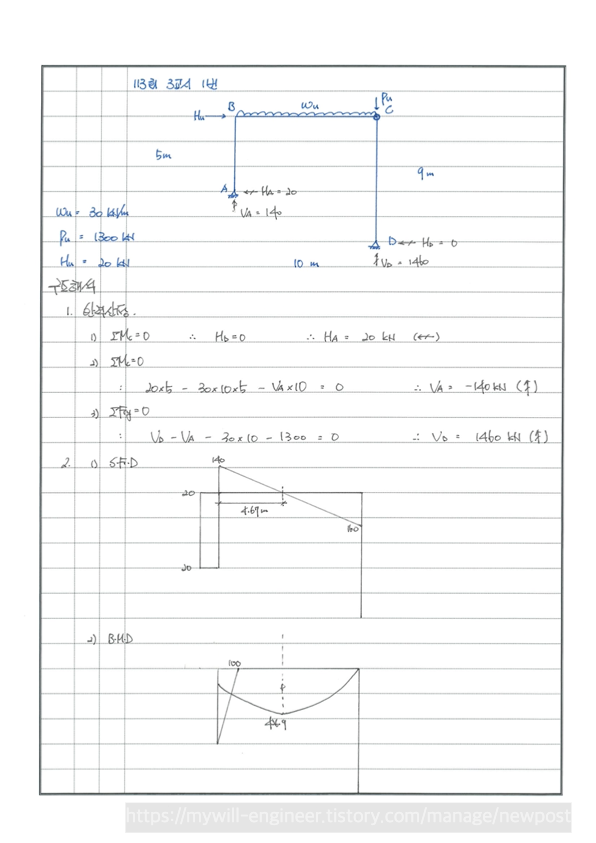 113회 3교시 1번
Pu
B Wu C
Hu
5m
9m
A HA = 20
VA = 140
D HD = 0
VD = 1460
Wu = 30 kN/m
Pu = 1300 kN
Hu = 20 kN
10 m
구조해석
1. 반력산정.
1) ΣMc=0 ∴ HD=0 ∴ HA = 20 kN (←)
2) ΣMc=0
: 20x5 - 30x10x5 - VAx10 = 0 ∴ VA = -140 kN (↑)
3) ΣFy=0
: VD - VA - 30x10 - 1300 = 0 ∴ VD = 1460 kN (↑)
2. 1) S.F.D
140
20
4.67m
160
20
2) B.M.D
100
https://mywill-engineer.tistory.com/manage/newpost